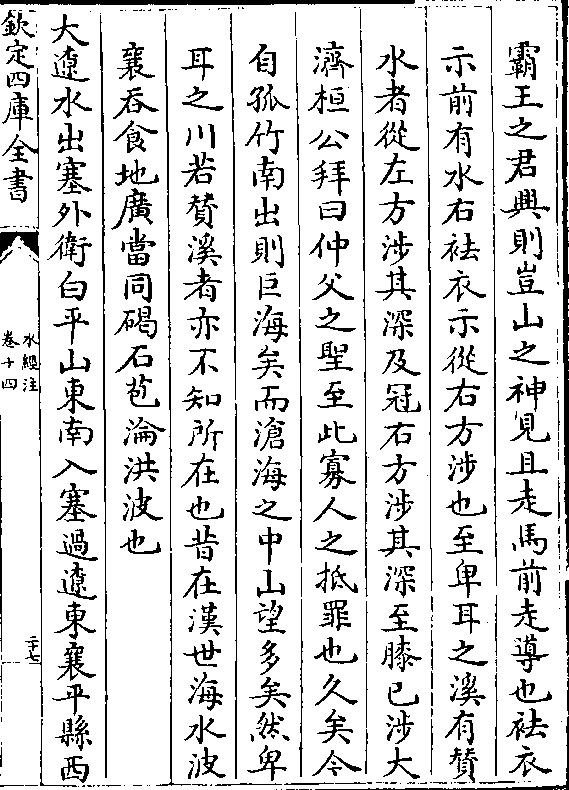 霸王之君興則豈山之神見且走馬前走導也袪衣
示前有水右袪衣示從右方涉也至卑耳之溪有贊
水者從左方涉其深及冠右方涉其深至膝已涉大
濟桓公拜曰仲父之聖至此寡人之抵罪也久矣今
自孤竹南出則巨海矣而滄海之中山望多矣然卑
耳之川若贊溪者亦不知所在也昔在漢世海水波
襄吞食地廣當同碣石苞淪洪波也
大遼水出塞外衛白平山東南入塞過遼東襄平縣西
欽定四庫全書
水經注
卷十四
二十七